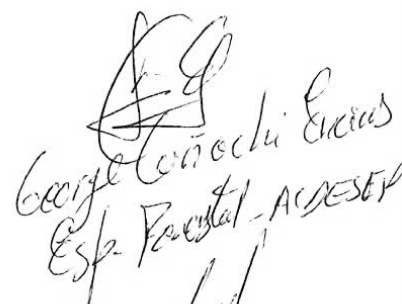 George Coñochi Encinas
Esp. Forestal - AIDESEP